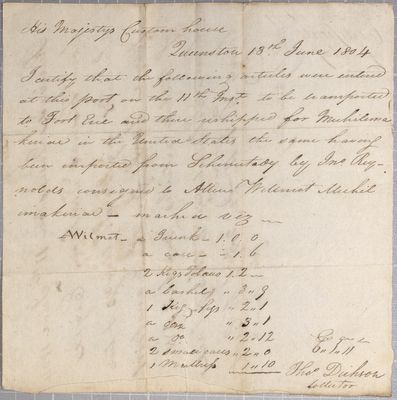 His Majestys Custom house
Queenston 13th June 1804
I certify that the following articles were entered
at this Port on the 11th Inst. to be transported
to Fort Erie and there reshipped for Michilima
kinac in the United States the same having
been imported from Schenectady by Jno. Rey-
nolds consigned to Wilmot Michil
imakinac - marked viz
Wilmot - a Trunk - 1.0.0
a case - - 1.6
2 Kegs 1.2 -
a basket " 3 " 9
1 Keg " 2 " 1
a " 3 " 1
a Do " 2 " 12
2 small " 2 " 0
1 " 1 " 10
Thos Dickson
Collector